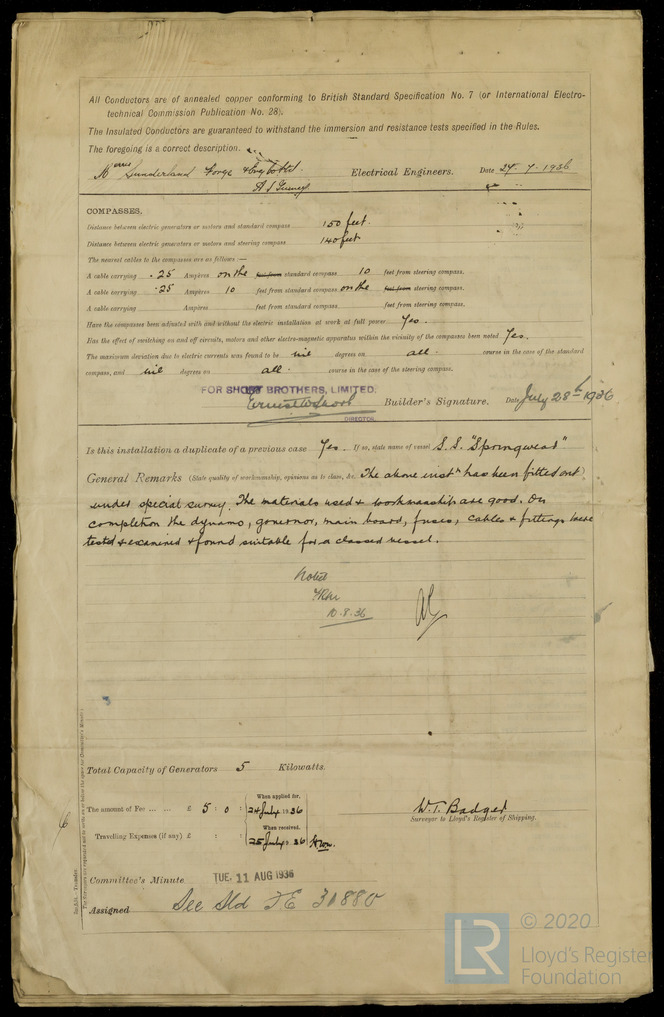 All Conductors are of annealed copper conforming to British Standard Specification No. 7 (or International Electro-
technical Commission Publication No. 28).
The Insulated Conductors are guaranteed to withstand the immersion and resistance tests specified in the Rules.
The foregoing is a correct description.
Sunderland Forge & Eng Co Ltd. Electrical Engineers. Date 27. 7. 1936
COMPASSES.
Distance between electric generators or motors and standard compass 150 feet.
Distance between electric generators or motors and steering compass 140 feet
The nearest cables to the compasses are as follows:—
A cable carrying .25 Ampères on the feet from standard compass 10 feet from steering compass.
A cable carrying .25 Ampères 10 feet from standard compass on the feet from steering compass.
A cable carrying Ampères feet from standard compass feet from steering compass.
Have the compasses been adjusted with and without the electric installation at work at full power Yes.
Has the effect of switching on and off circuits, motors and other electro-magnetic apparatus within the vicinity of the compasses been noted Yes.
The maximum deviation due to electric currents was found to be nil degrees on all course in the case of the standard
compass, and nil degrees on all. course in the case of the steering compass.
FOR SHORT BROTHERS, LIMITED.
Builder's Signature. Date July 28th 1936
DIRECTOR.
Is this installation a duplicate of a previous case Yes. If so, state name of vessel S.S. "Springwear"
General Remarks (State quality of workmanship, opinions as to class, &c. The above instn has been fitted out
under special survey. The materials used & workmanship are good. On
completion the dynamo, governor, main board, fuses, cables & fittings were
tested & examined & found suitable for a classed vessel.
Noted
10.8.36
Total Capacity of Generators 5 Kilowatts.
When applied for,
The amount of Fee ... ... £ 5 : 0 : 24 July 1936
When received,
Travelling Expenses (if any) £ : : 25 July 1936
W.T. Badger
Surveyor to Lloyd's Register of Shipping.
Committee's Minute TUE. 11 AUG 1936
Assigned See Sld FE 31880
LR
© 2020
Lloyd's Register
Foundation